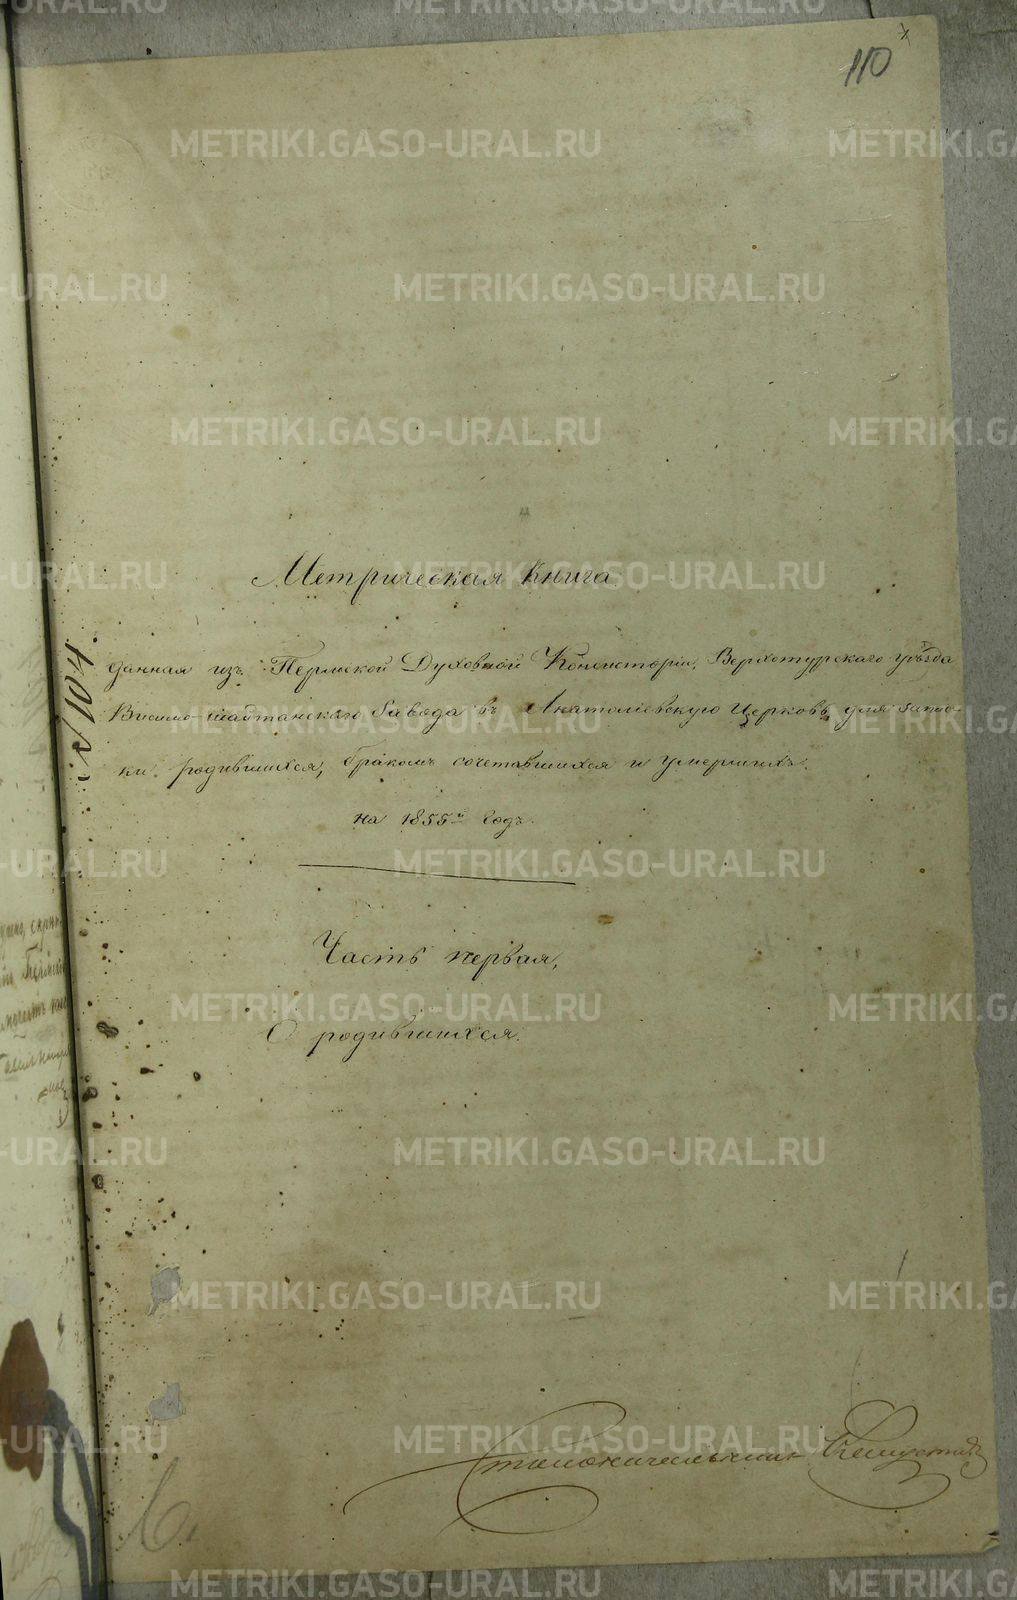 110
№ 104.
Метрическая книга
данная изъ Пермской Духовной Консисторіи, Верхотурскаго уѣзда
Висимо-шайтанскаго завода въ Анатоліевскую церковь, для запис-
ки родившихся, бракомъ сочетавшихся и умершихъ.
на 1855й годъ.
Часть первая,
О родившихся.
Столоначальникъ
METRIKI.GASO-URAL.RU